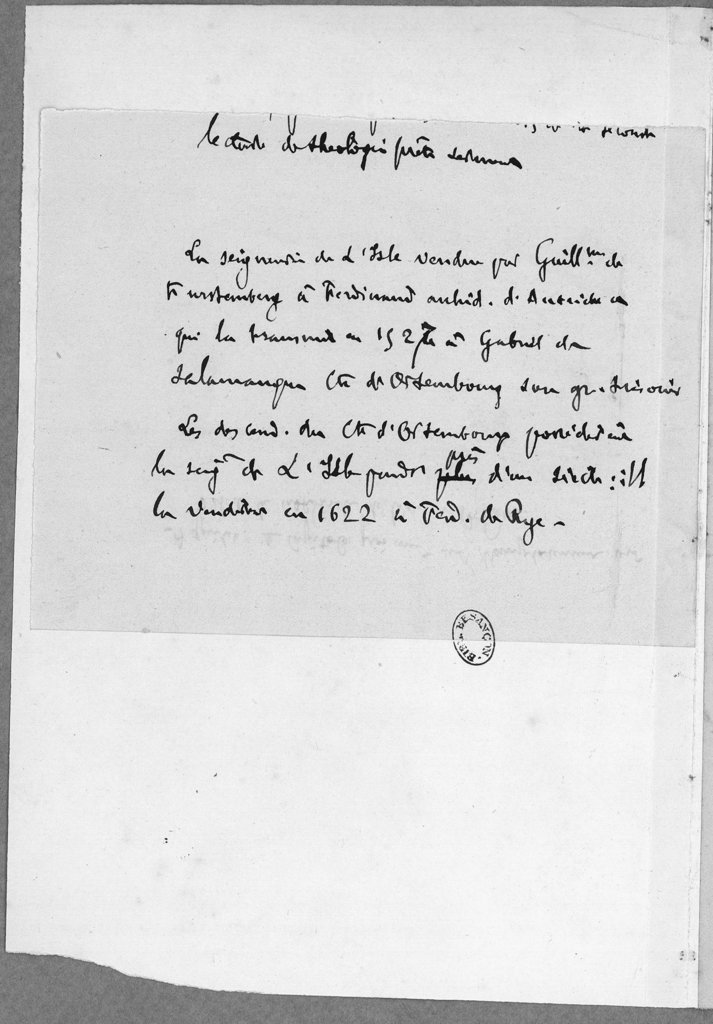 la seconde
le docte de theologie prete serment
La seigneurie de L'Isle vendue par Guillme de
Furstemberg à Ferdinand archid. d'Autriche
qui la transmit en 1527 à Gabriel de
Salamanque Cte d'Ortembourg son gr. trésorier
Les descend. du Cte d'Ortembourg possédèrent
la seigrie de L'Isle pendt près d'un siècle : ils
la vendirent en 1622 à Ferd. de Rye.
BESANÇON BIB.